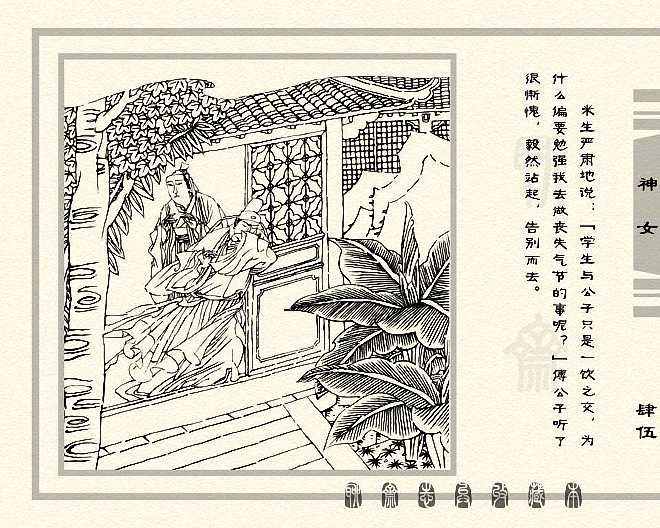 神女
肆伍
米生严肃地说：“学生与公子只是一饮之交，为
什么偏要勉强我去做丧失气节的事呢？”傅公子听了
很惭愧，毅然站起，告别而去。